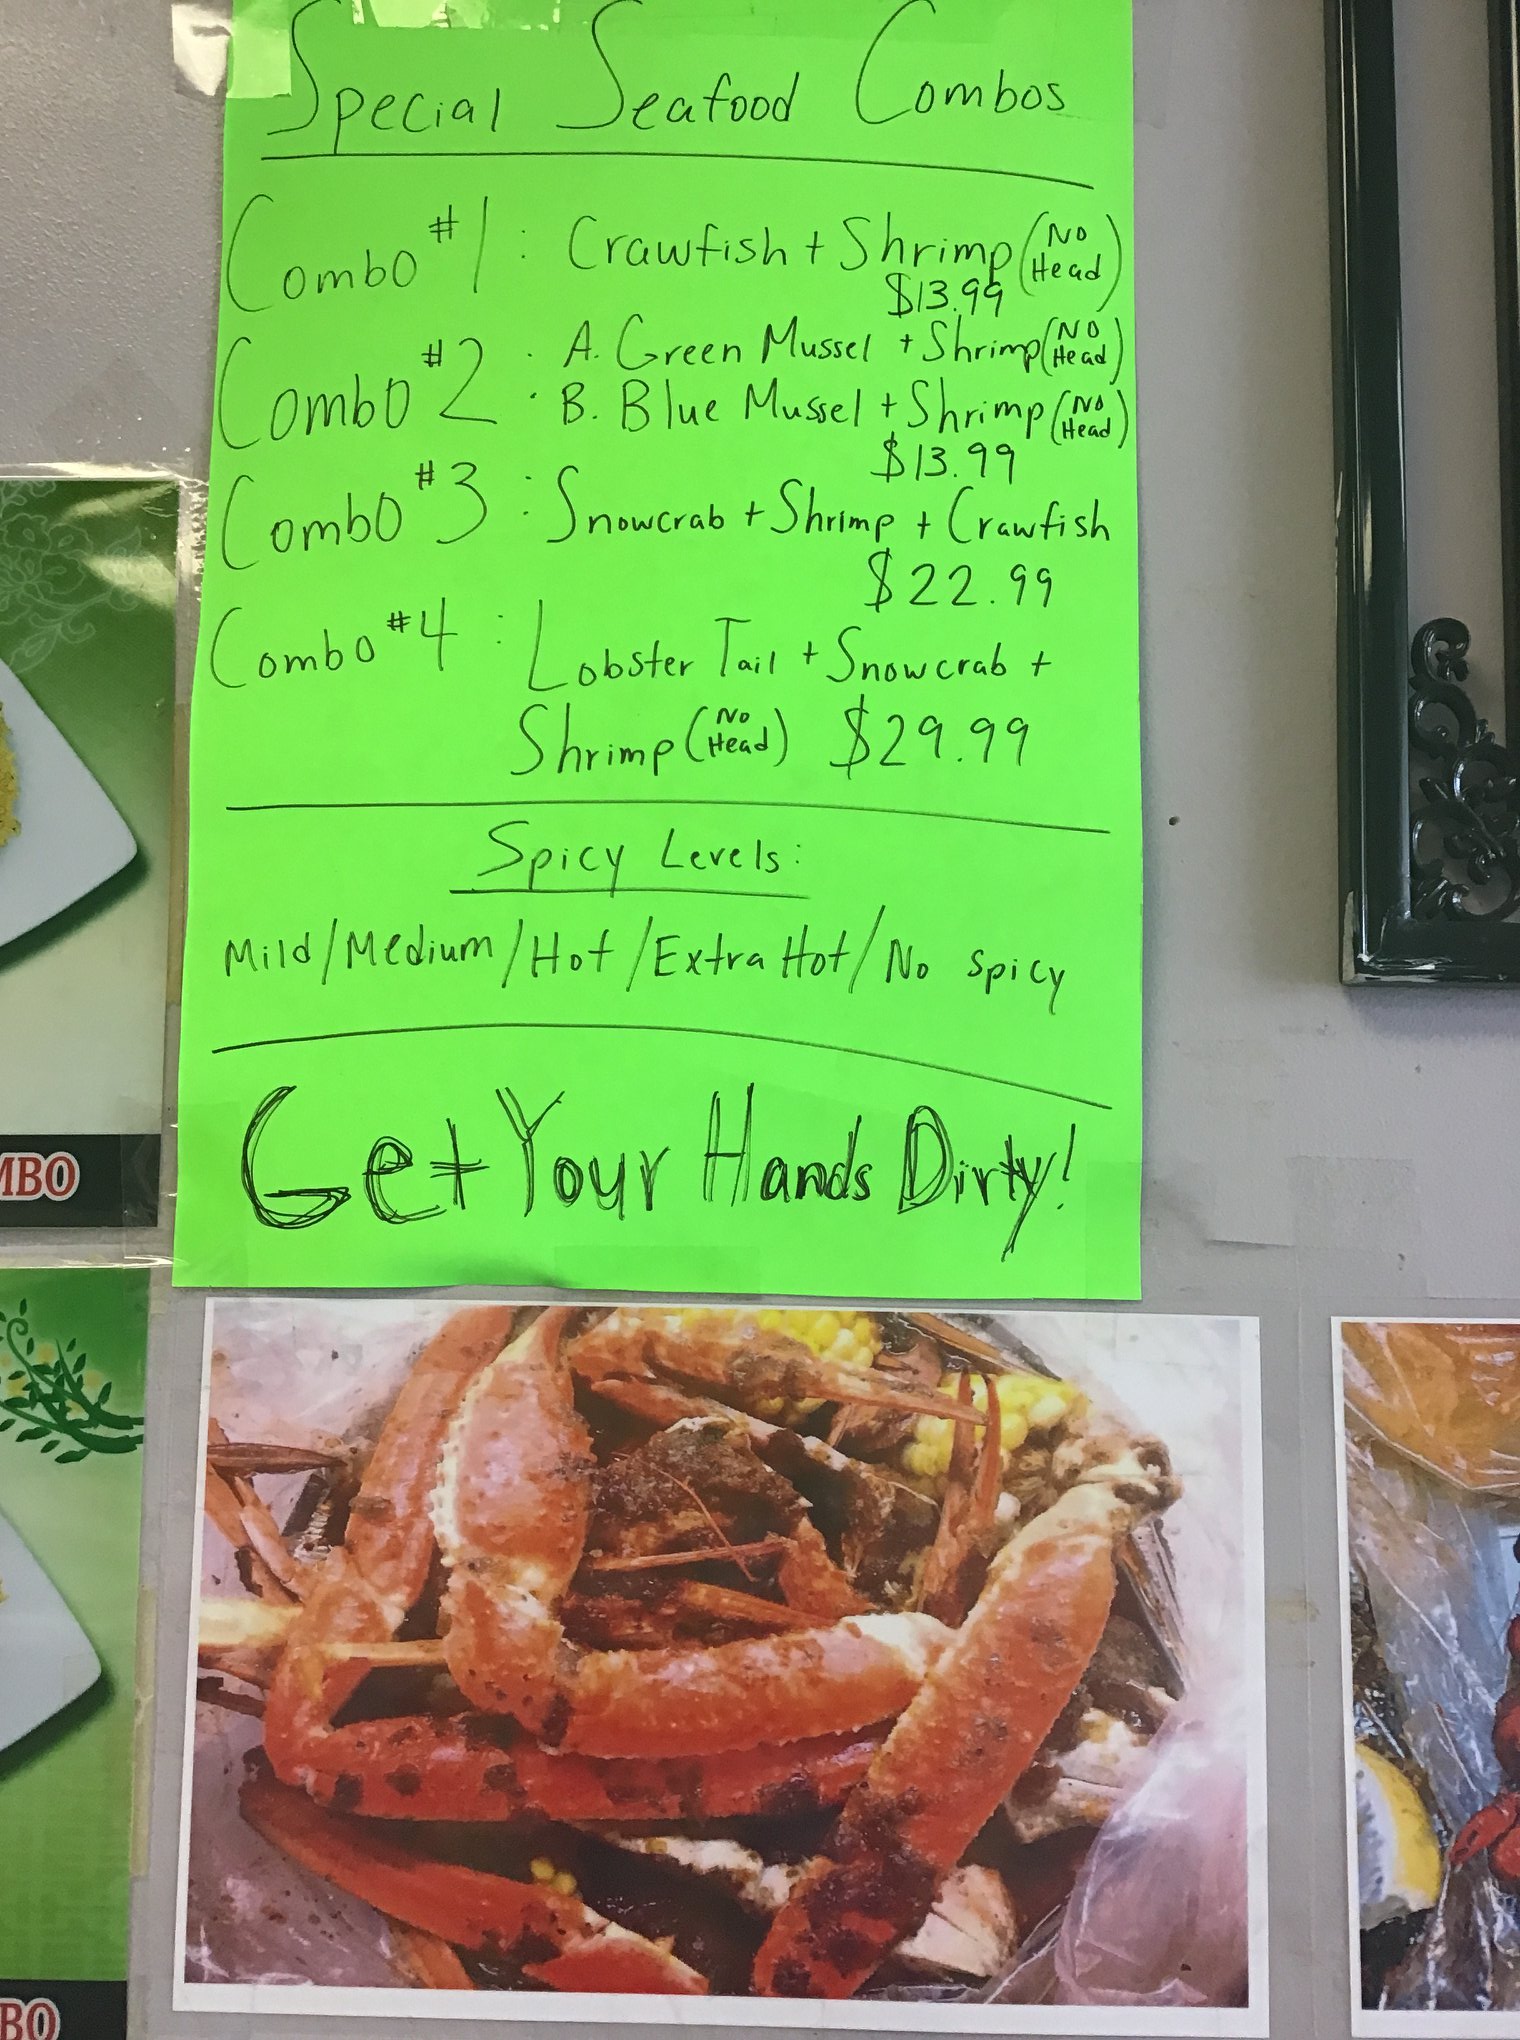 Special Seafood Combos
Combo #1 : Crawfish + Shrimp (No Head)
$13.99
Combo #2 : A. Green Mussel + Shrimp (No Head)
B. Blue Mussel + Shrimp (No Head)
$13.99
Combo #3 : Snowcrab + Shrimp + Crawfish
$22.99
Combo #4 : Lobster Tail + Snowcrab +
Shrimp (No Head) $29.99
Spicy Levels:
Mild/Medium/Hot/Extra Hot/No spicy
Get Your Hands Dirty!
MBO
BO